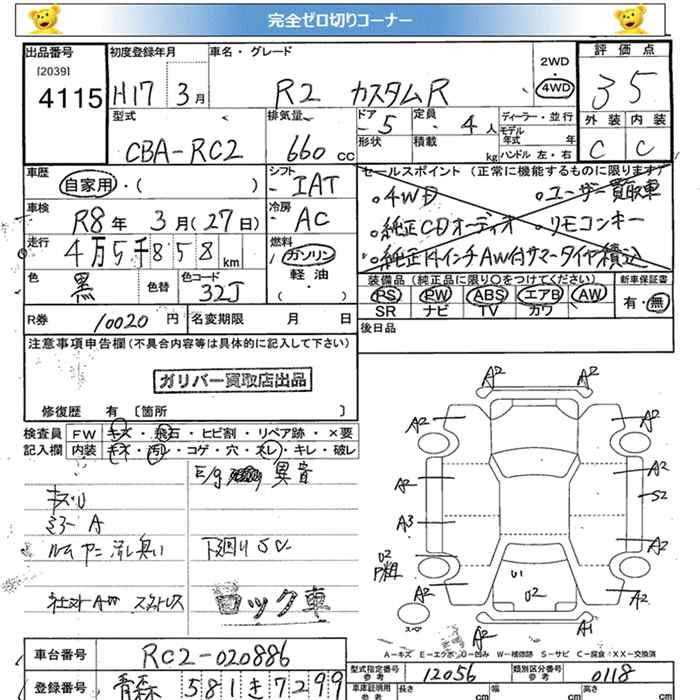 完全ゼロ切りコーナー
出品番号 初度登録年月 車名・グレード 評価点
[2039]
4115 H17 3月 R2 カスタムR 2WD 4WD 35
型式 排気量 ドア 5 定員 4人 ディーラー・並行 外装 内装
CBA-RC2 660cc 形状 積載 kg モデル年式 年 C C
ハンドル 左・右
車歴 自家用・( ) シフト IAT セールスポイント(正常に機能するものに限ります)
。4WD 。ユーザー買取車
車検 R8年3月(27日) 冷房 AC 。純正CDオーディオ 。リモコンキー
走行 4万5千858km 燃料 ガソリン 。純正14インチAW付サマータイヤ積込
軽油
( )
色 黒 色替 色コード 32J
装備品(純正品に限り○をつけてください) 新車保証書
PS PW ABS エアB AW 有・無
SR ナビ TV カワ
R券 10020円 名変期限 月 日 後日品
注意事項申告欄(不具合内容等は具体的に記入して下さい)
ガリバー買取店出品
修復歴 有 〔箇所 〕
検査員 FW キズ・飛石・ヒビ割・リペア跡・×要
記入欄 内装 キズ・汚レ・コゲ・穴・スレ・キレ・破レ
E/g 異音
キズ・U
ミラー A
ルームヤニ 流し臭い 下回りSC
社エストAW スタットレス
ロック車
A2 A2
A2 A2
A2 A2
S2
A3 A2
U2 U1
A2 U2 A2
スペア
A2 A1
A-キズ E-エクボ U-凹み W-補修跡 S-サビ C-腐食 XX-交換済
車台番号 RC2-020886 型式指定番号 参考 12056 類別区分番号 参考 0118
登録番号 青森 581き7299 車庫証明用 参考 長さ cm 幅 cm 高さ cm